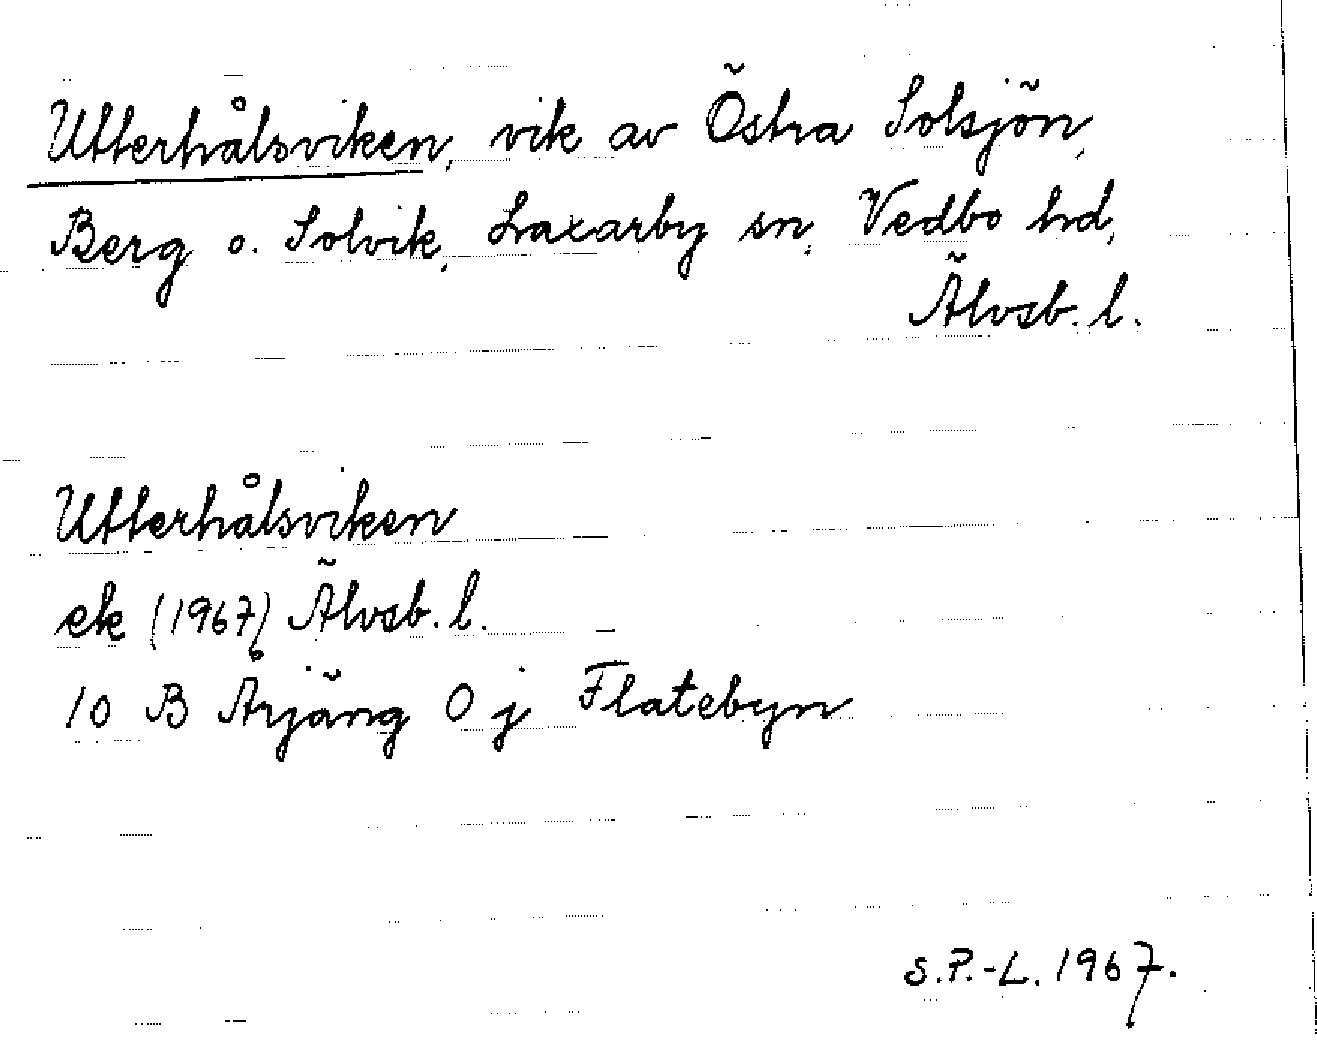 Utterhålsviken, vik av Östra Solsjön,
Berg o. Solvik, Laxarby sn, Vedbo hd,
Älvsb. l.
Utterhålsviken
ek (1967) Älvsb. l.
10 B Årjäng 0 j Flatebyn
S.P.-L. 1967.